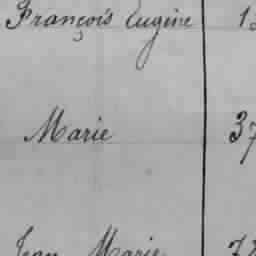 François Eugène
Marie 37
Jean Marie